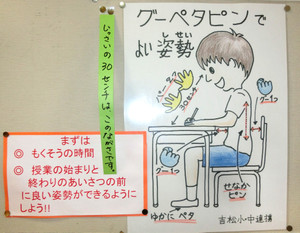 グーペタピンで
よい姿勢
しせい
じっさいの30センチは、このながさです。
グー1つ
30センチ
グー1つ
せなか
ピン
ゆかに ペタ
吉松小・中連携
まずは
◎ もくそうの時間
◎ 授業の始まりと
終わりのあいさつの前
に良い姿勢ができるようにしよう!!